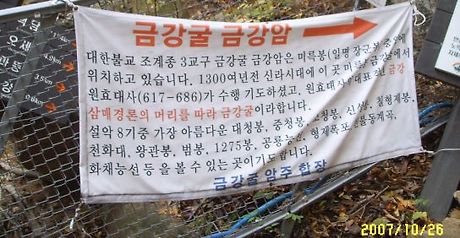 금강굴 금강암
대한불교 조계종 3교구 금강굴 금강암은 미륵봉(일명 장군봉
위치하고 있습니다. 1300여년전 신라시대에 이 곳 미륵 금강굴에서
원효대사(617-686)가 수행 기도하셨고, 원효대사 대표 금강
삼매경론의 머리를 따라 금강굴이라합니다.
설악 8기중 가장 아름다운 대청봉, 중청봉, 소청봉, 신선봉, 철형제봉,
천화대, 왕관봉, 범봉, 1275봉, 공룡능선, 형제폭포, 계곡,
화채능선 등을 볼 수 있는 곳이기도합니다.
금강굴 암주 합장
2007/10/26